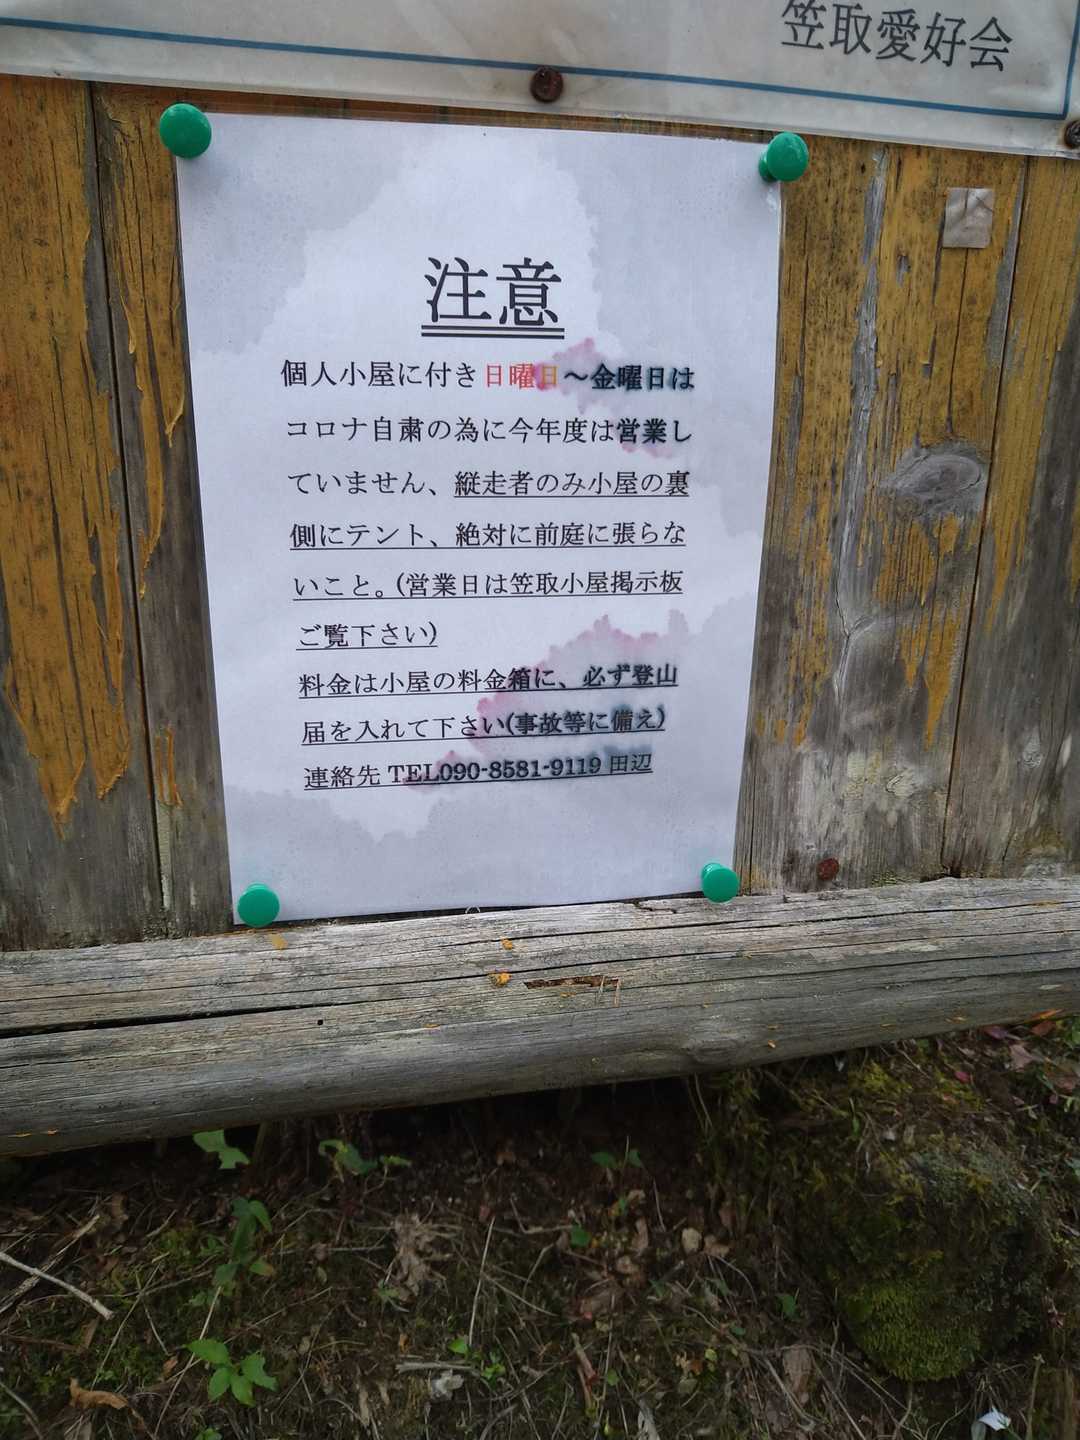 笠取愛好会
注意
個人小屋に付き日曜日～金曜日は
コロナ自粛の為に今年度は営業し
ていません、縦走者のみ小屋の裏
側にテント、絶対に前庭に張らな
いこと。(営業日は笠取小屋掲示板
ご覧下さい)
料金は小屋の料金箱に、必ず登山
届を入れて下さい(事故等に備え)
連絡先 TEL090-8581-9119 田辺